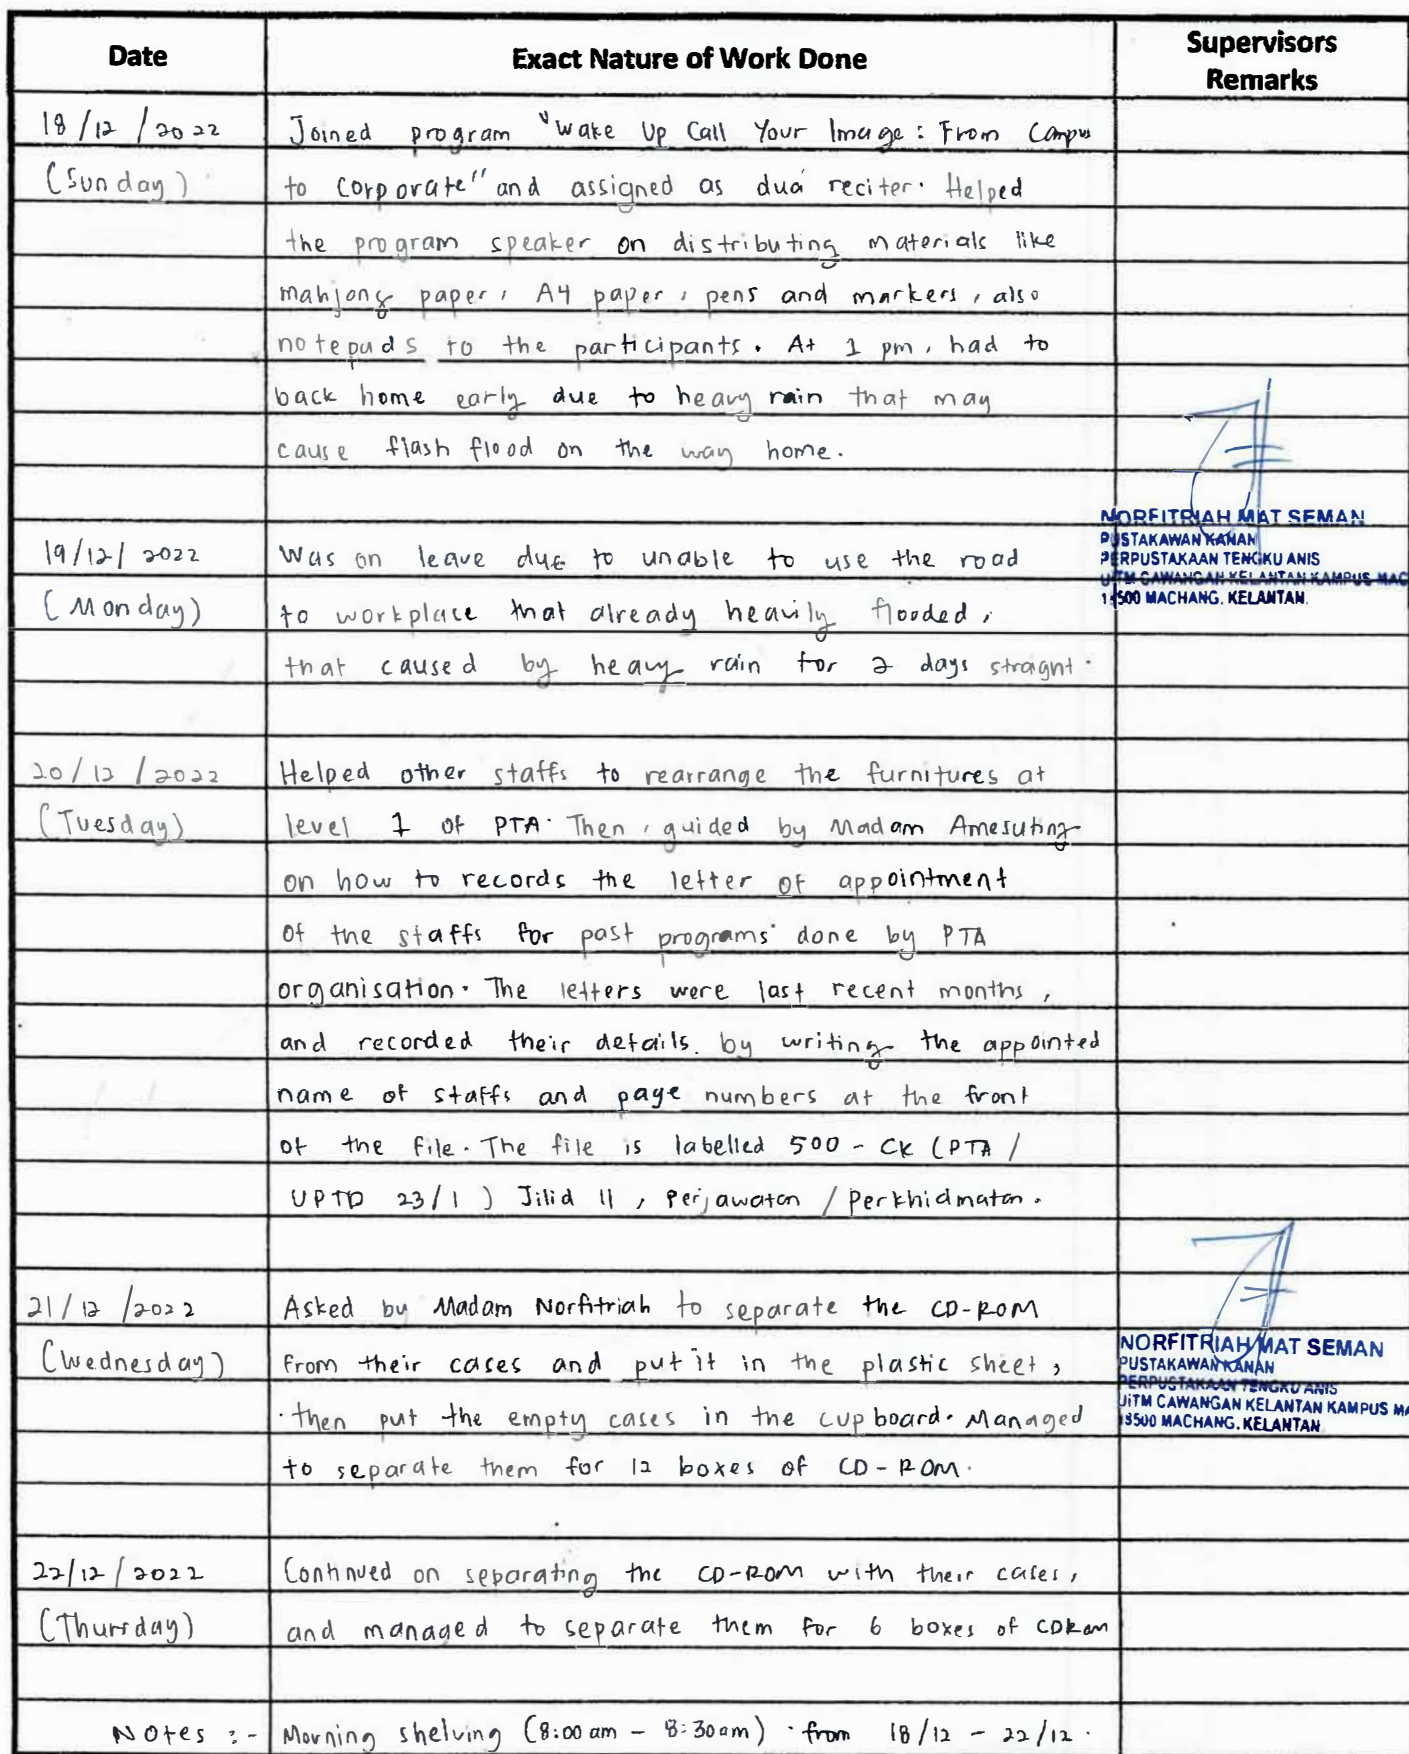 Date Exact Nature of Work Done Supervisors Remarks
18/12/2022 Joined program "Wake Up Call Your Image: From Campus
(Sunday) to corporate" and assigned as dua' reciter. Helped
the program speaker on distributing materials like
mahjong paper, A4 paper, pens and markers, also
notepads to the participants. At 1 pm, had to
back home early due to heavy rain that may
cause flash flood on the way home.
NORFITRIAH MAT SEMAN
PUSTAKAWAN KANAN
PERPUSTAKAAN TENGKU ANIS
UiTM CAWANGAN KELANTAN KAMPUS MAC
18500 MACHANG, KELANTAN.
19/12/2022 Was on leave due to unable to use the road
(Monday) to workplace that already heavily flooded,
that caused by heavy rain for 2 days straight.
20/12/2022 Helped other staffs to rearrange the furnitures at
(Tuesday) level 1 of PTA. Then, guided by Madam
on how to records the letter of appointment
of the staffs for past programs done by PTA
organisation. The letters were last recent months,
and recorded their details by writing the appointed
name of staffs and page numbers at the front
of the file. The file is labelled 500 - CK (PTA /
UPTD 23/1) Jilid 11, Perjawatan / Perkhidmatan.
21/12/2022 Asked by Madam Norfitriah to separate the CD-ROM
(Wednesday) from their cases and put it in the plastic sheet,
then put the empty cases in the cupboard. Managed
to separate them for 12 boxes of CD-ROM.
NORFITRIAH MAT SEMAN
PUSTAKAWAN KANAN
PERPUSTAKAAN TENGKU ANIS
UiTM CAWANGAN KELANTAN KAMPUS MA
18500 MACHANG, KELANTAN
22/12/2022 Continued on separating the CD-ROM with their cases,
(Thursday) and managed to separate them for 6 boxes of CDRom
Notes :- Morning shelving (8:00 am - 8:30 am) from 18/12 - 22/12.